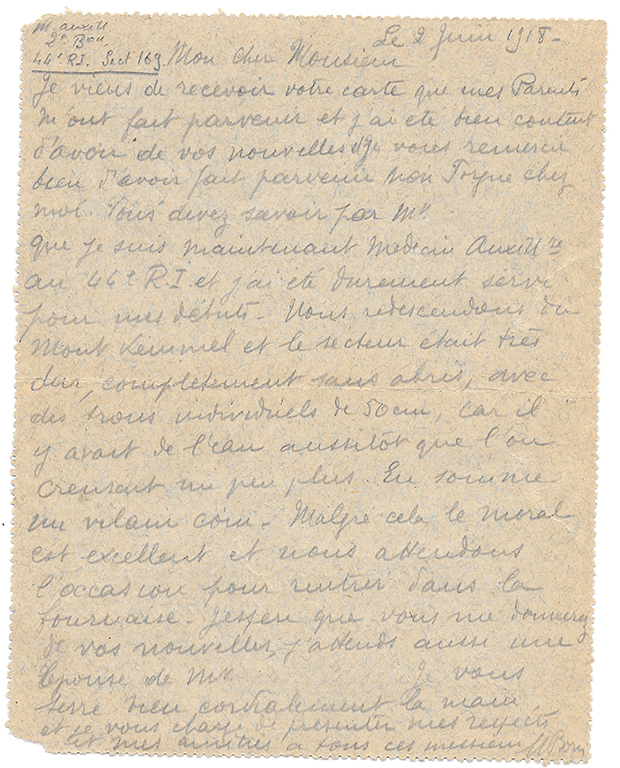 M. auxill
2e Bon
44e R.I. Sect 169.
Le 2 Juin 1918 -
Mon cher Monsieur
Je viens de recevoir votre carte que mes Parents
m'ont fait parvenir et j'ai été bien content
d'avoir de vos nouvelles. Je vous remercie
bien d'avoir fait parvenir mon chez
moi. Vous devez savoir par Mr
que je suis maintenant Medecin Auxill re
au 44e R.I. et j'ai été durement servi
pour mes débuts - Nous redescendons du
Mont Kemmel et le secteur était très
dur, complètement sans abris, avec
des trous individuels de 50cm, car il
y avait de l'eau aussitôt que l'on
creusait un peu plus. En somme
un vilain coin - Malgré cela le moral
est excellent et nous attendons
l'occasion pour rentrer dans la
fournaise - J'espère que vous me donnerez
de vos nouvelles, j'attends aussi une
réponse de Mr Je vous
serre bien cordialement la main
et je vous charge de présenter mes respects
et mes amitiés à tous ces messieurs